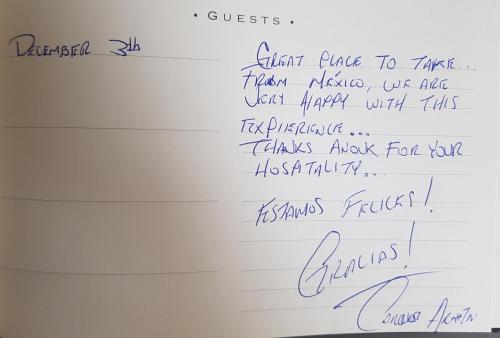 • GUESTS •
DECEMBER 3th
GREAT PLACE TO TAKE...
FROM MÉXICO, WE ARE
VERY HAPPY WITH THIS
EXPIERIENCE...
THANKS ANOUK FOR YOUR
HOSPITALITY...
ESTAMOS FELICES!
GRACIAS!